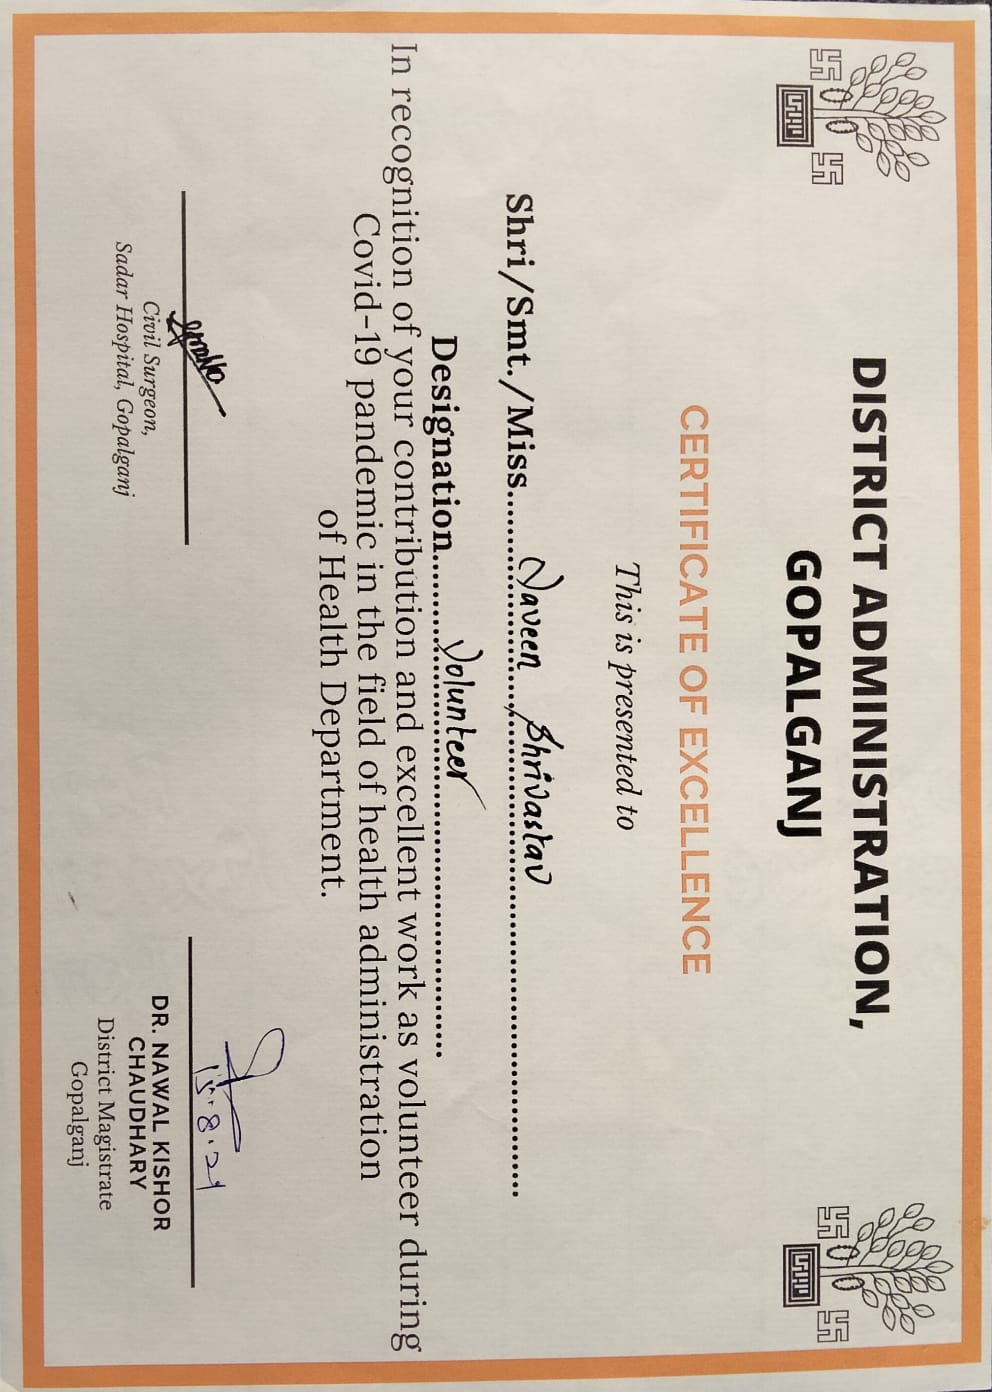 DISTRICT ADMINISTRATION,
GOPALGANJ
CERTIFICATE OF EXCELLENCE
This is presented to
Shri/Smt./Miss......Naveen Shrivastav......
Designation......Volunteer......
In recognition of your contribution and excellent work as volunteer during
Covid-19 pandemic in the field of health administration
of Health Department.
15.8.21
Civil Surgeon,
Sadar Hospital, Gopalganj
DR. NAWAL KISHOR
CHAUDHARY
District Magistrate
Gopalganj